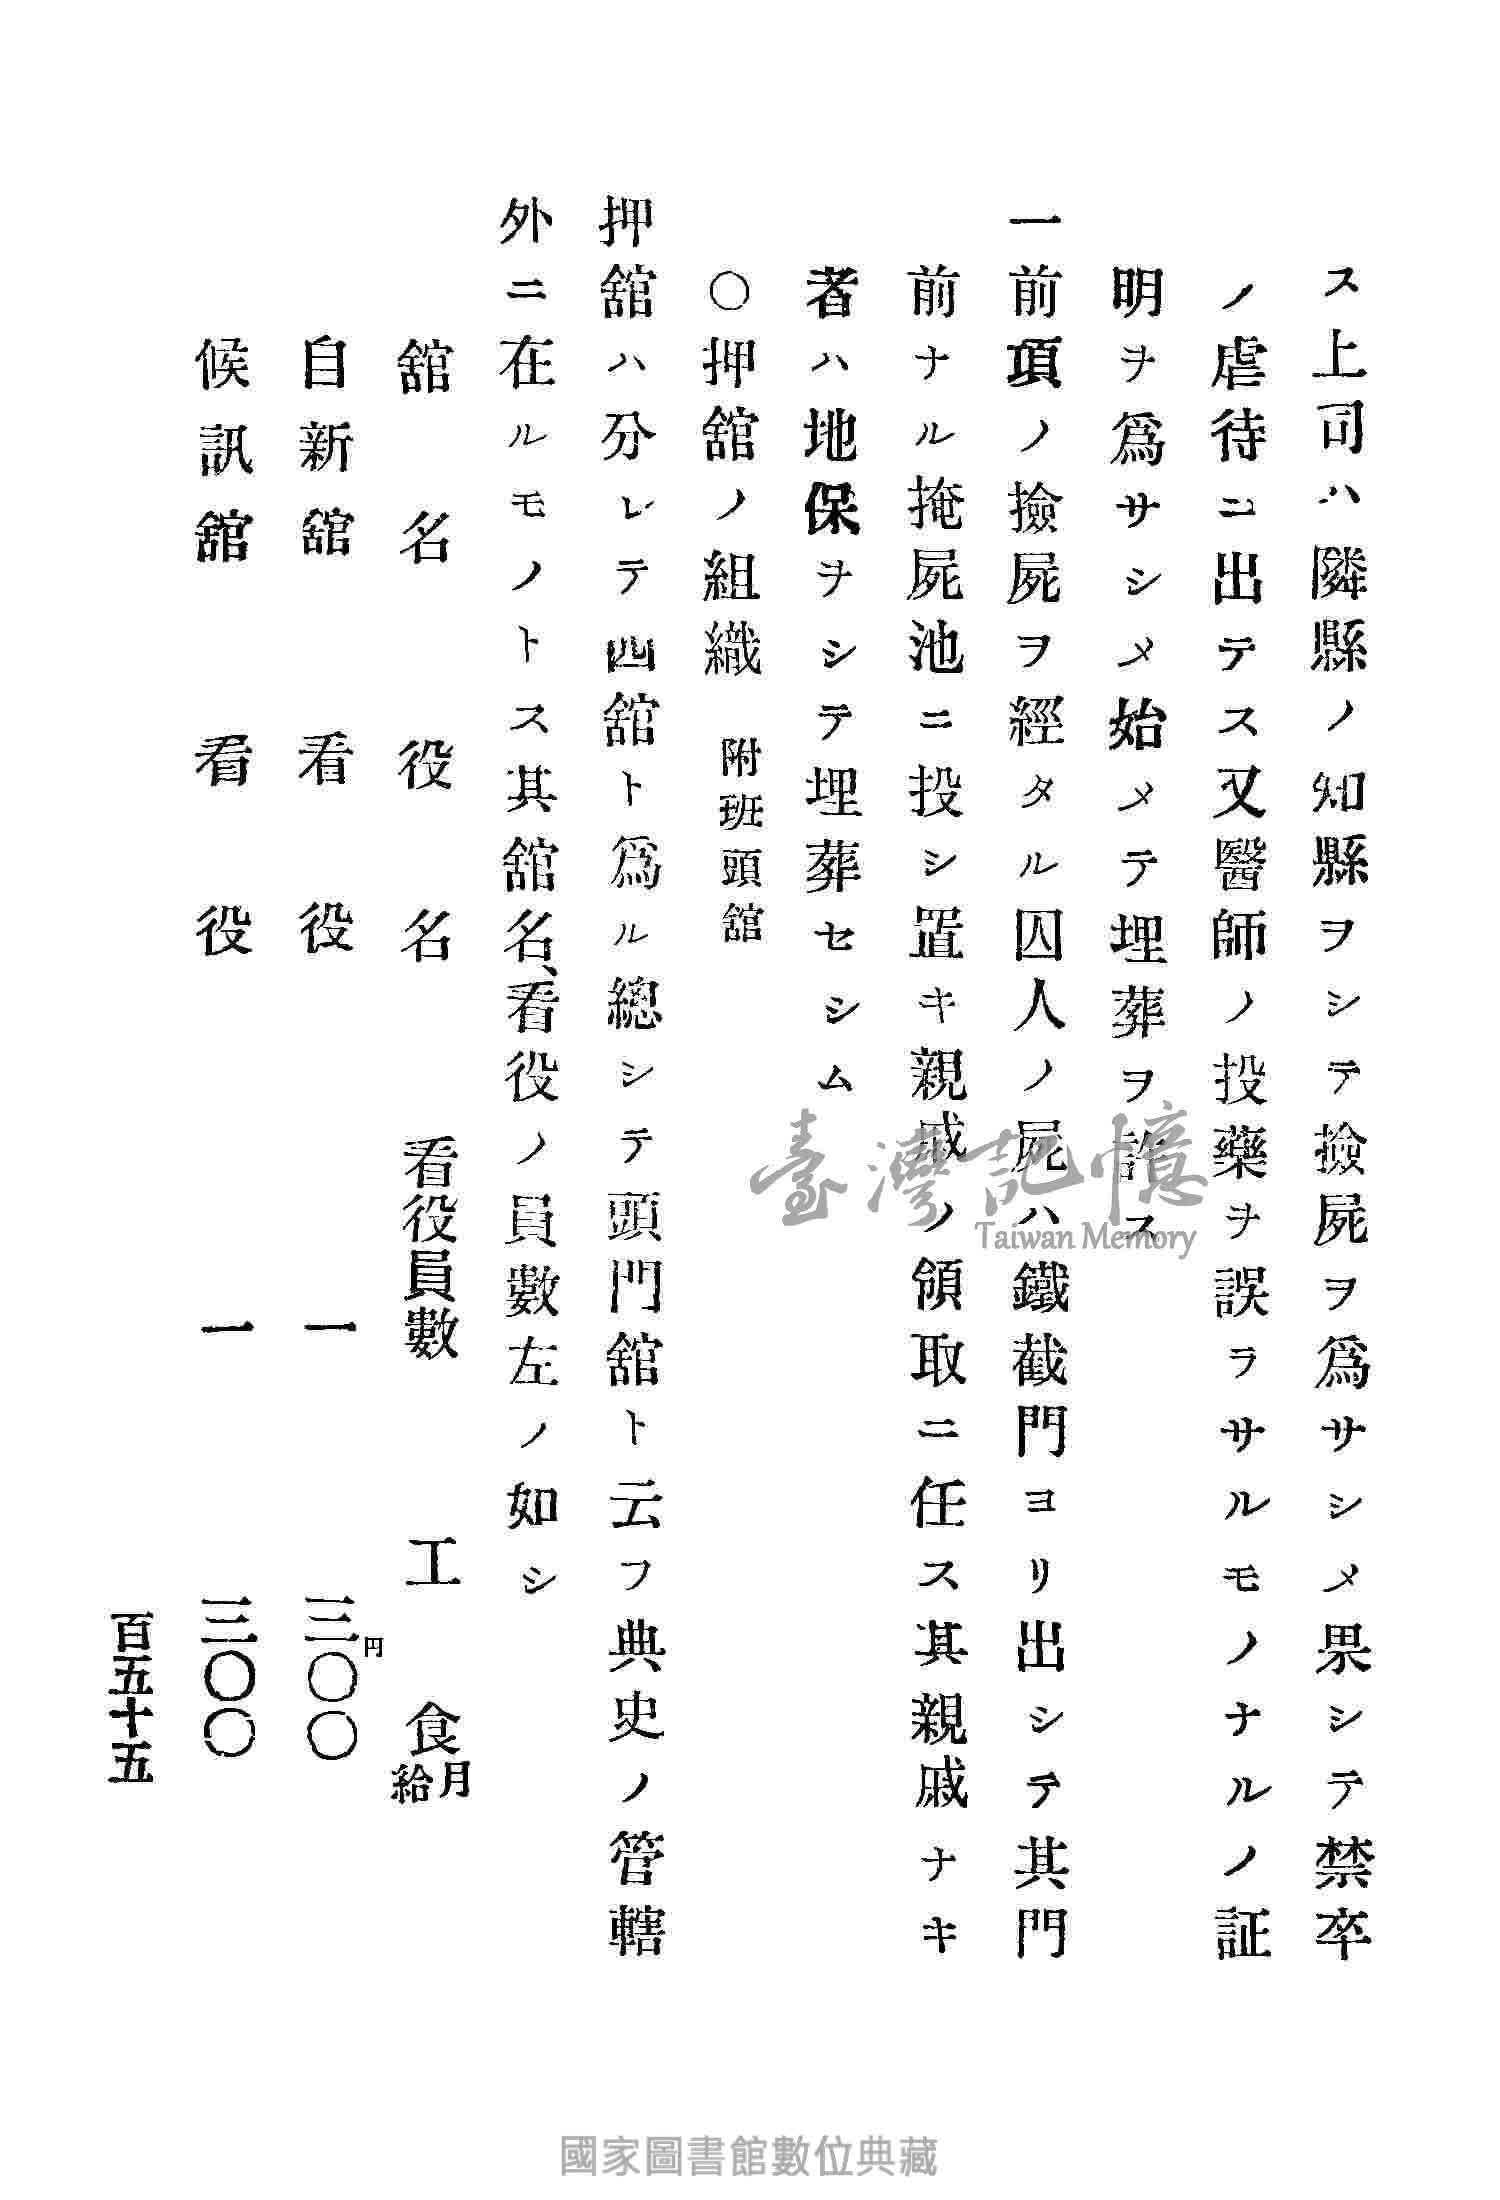 ス上司ハ隣縣ノ知縣ヲシテ撿屍ヲ爲サシメ果シテ禁卒
ノ虐待ニ出テス又醫師ノ投藥ヲ誤ラサルモノナルノ証
明ヲ爲サシメ始メテ埋葬ヲ許ス
一前項ノ撿屍ヲ經タル囚人ノ屍ハ鐵截門ヨリ出シテ其門
前ナル掩屍池ニ投シ置キ親戚ノ領取ニ任ス其親戚ナキ
者ハ地保ヲシテ埋葬セシム
〇押舘ノ組織 附班頭舘
押舘ハ分レテ四舘ト爲ル總シテ頭門舘ト云フ典史ノ管轄
外ニ在ルモノトス其舘名、看役ノ員數左ノ如シ
舘名 役名 看役員數 工食月給
自新舘 看役 一 三円〇〇
候訊舘 看役 一 三〇〇
百五十五
臺灣記憶
Taiwan Memory
國家圖書館數位典藏